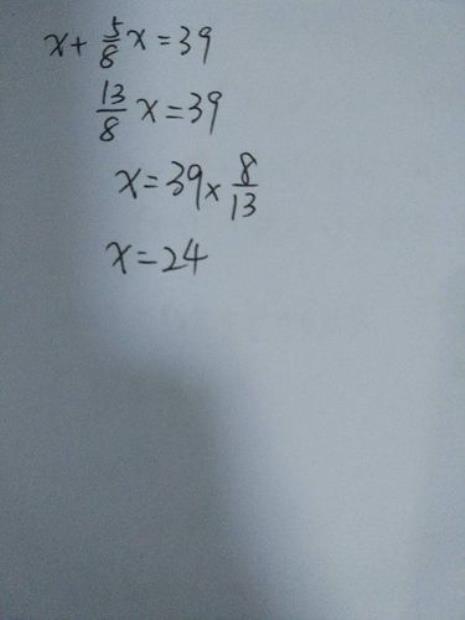 x + 5/8 x = 39
13/8 x = 39
x = 39 × 8/13
x = 24